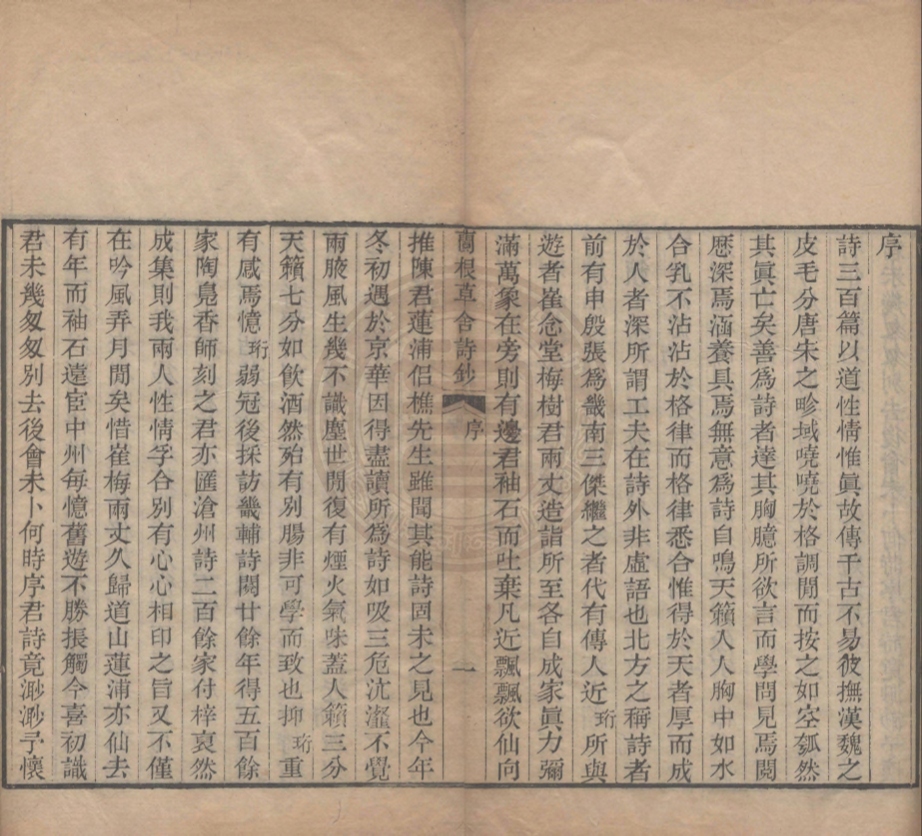 序
詩三百篇以道性情惟眞故傳千古不易彼撫漢魏之
皮毛分唐宋之畛域嘵嘵於格調間而按之如空瓠然
其眞亡矣善爲詩者達其胸臆所欲言而學問見焉閱
歷深焉涵養具焉無意爲詩自鳴天籟人人胸中如水
合乳不沾沾於格律而格律悉合惟得於天者厚而成
於人者深所謂工夫在詩外非虛語也北方之稱詩者
前有申殷張爲畿南三傑繼之者代有傳人近珩所與
遊者崔念堂梅樹君兩丈造詣所至各自成家眞力彌
滿萬象在旁則有邊君袖石而吐棄凡近飄飄欲仙向
蘭根草舍詩鈔
序
一
推陳君蓮浦侶樵先生雖聞其能詩固未之見也今年
冬初遇於京華因得盡讀所爲詩如吸三危沆瀣不覺
兩腋風生幾不識塵世間復有煙火氣味蓋人籟三分
天籟七分如飲酒然殆有別腸非可學而致也抑珩重
有感焉憶珩弱冠後採訪畿輔詩閱廿餘年得五百餘
家陶鳧香師刻之君亦匯滄州詩二百餘家付梓裒然
成集則我兩人性情孚合別有心心相印之旨又不僅
在吟風弄月間矣惜崔梅兩丈久歸道山蓮浦亦仙去
有年而袖石遠宦中州每憶舊遊不勝振觸今喜初識
君未幾匆匆別去後會未卜何時序君詩竟渺渺予懷